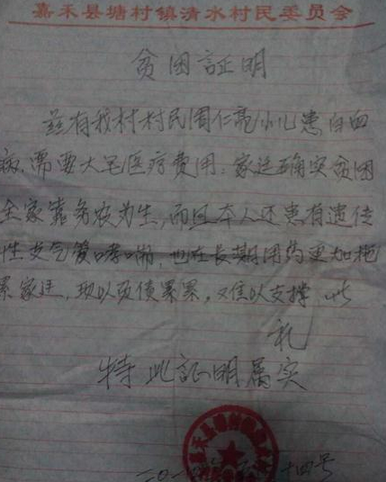 嘉禾县塘村镇清水村民委员会
贫困証明
兹有我村村民周仁亮小儿患白血
病,需要大笔医疗费用,家廷确实贫困
全家靠务农为生,而且本人还患有遗传
性支气管哮喘,也在长期用药更加拖
累家廷,现以负债累累,难以支撑,此
礼
特此証明属实